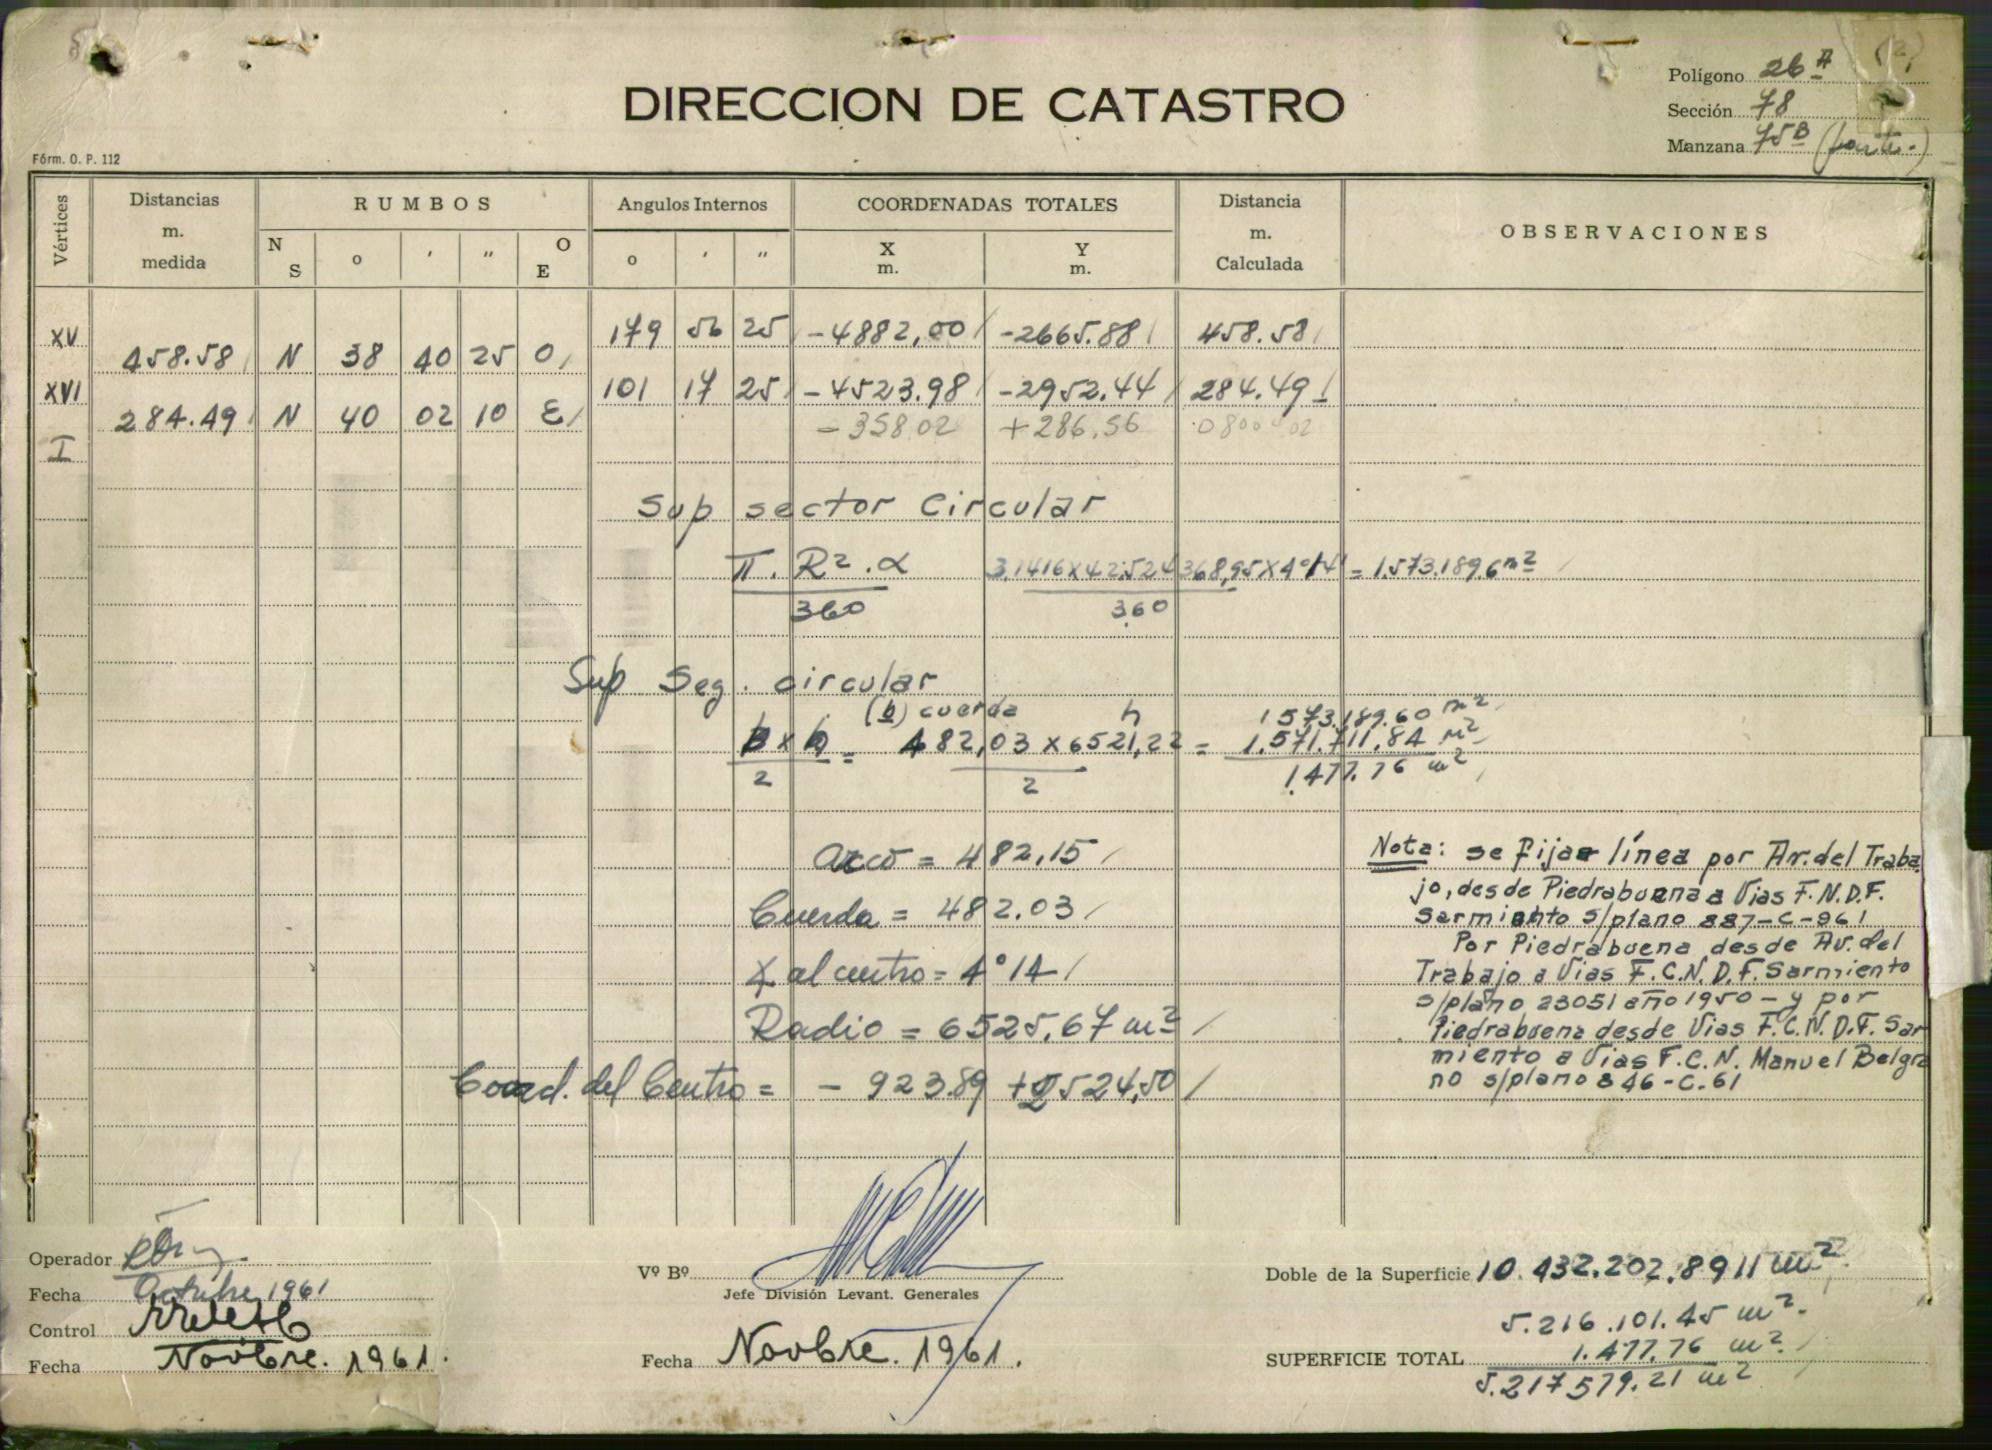 (2)
Polígono 26 A
DIRECCION DE CATASTRO
Sección 78
Manzana 75B (parte.)
Fórm. O. P. 112
Vértices
Distancias m. medida
RUMBOS
N S o ' " O E
Angulos Internos
o ' "
COORDENADAS TOTALES
X m. Y m.
Distancia m. Calculada
OBSERVACIONES
XV 179 56 25 -4882,00 -2665.88 458.58
458.58 N 38 40 25 O
XVI 101 17 25 -4523.98 -2952.44 284.49
284.49 N 40 02 10 E
-358.02 +286.56
I
Sup sector Circular
π. R². α 3,1416 x 42.524.368,95 x 4°14' = 1.573.189.6 m²
360 360
Sup Seg. circular
(b) cuerda h 1573.189.60 m²
b x h = 482,03 x 6521,22 = 1.571.711.84 m²
2 2 1.477.76 m²
arco = 482,15
Cuerda = 482.03
∢ al centro = 4°14
Radio = 6525,67 m²
Coord. del Centro = - 923.89 +2524,50
Nota: se fijar línea por Av. del Traba
jo, desde Piedrabuena a Vias F.N.D.F.
Sarmiento s/plano 887-C-961
Por Piedrabuena desde Av. del
Trabajo a Vias F.C.N.D.F. Sarmiento
s/plano 23051 año 1950 - y por
Piedrabuena desde Vias F.C.N.D.F. Sar
miento a Vias F.C.N. Manuel Belgra
no s/plano 846-C-61
Operador
Fecha Octubre 1961
Control
Fecha Novbre. 1961.
Vº Bº
Jefe División Levant. Generales
Fecha Novbre. 1961.
Doble de la Superficie 10.432.202,8911 m²
5.216.101.45 m²
SUPERFICIE TOTAL 1.477,76 m²
5.217579.21 m²